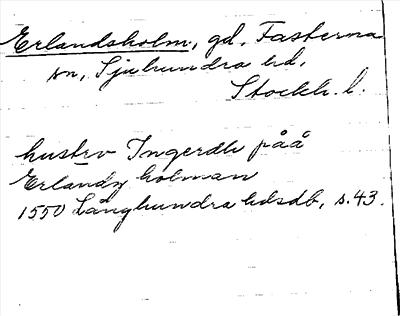 Erlandsholm, gd, Fasterna
sn, Sjuhundra hd,
Stockh. l.
hustrv Ingerdh påå
Erlandz holman
1550 Långhundra hdsdb, s. 43.